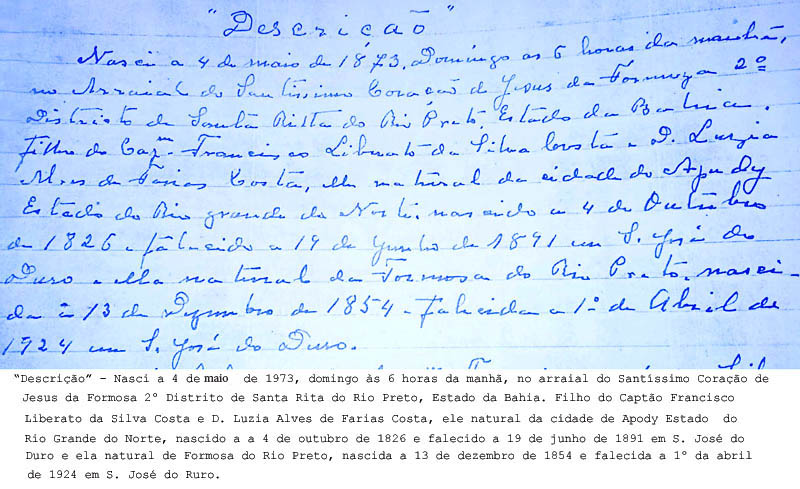 "Descrição"
Nasci a 4 de maio de 1873, Domingo as 6 horas da manhã,
no Arraial do Santissimo Coração de Jesus da Formoza 2º
Districto de Santa Ritta do Rio Preto, Estado da Bahia.
Filho do Capm. Francisco Liberato da Silva Costa e D. Luzia
Alves de Farias Costa, elle natural da cidade do Apody
Estado do Rio grande do Norte, nascido a 4 de Outubro
de 1826 e falecido a 19 de Junho de 1891 em S. José do
Duro e ella natural da Formosa do Rio Preto, nasci-
da a 13 de Dezembro de 1854 e falecida a 1º de Abril de
1924 em S. José do Duro.
"Descrição" – Nasci a 4 de maio de 1973, domingo às 6 horas da manhã, no arraial do Santíssimo Coração de
Jesus da Formosa 2º Distrito de Santa Rita do Rio Preto, Estado da Bahia. Filho do Captão Francisco
Liberato da Silva Costa e D. Luzia Alves de Farias Costa, ele natural da cidade de Apody Estado do
Rio Grande do Norte, nascido a a 4 de outubro de 1826 e falecido a 19 de junho de 1891 em S. José do
Duro e ela natural de Formosa do Rio Preto, nascida a 13 de dezembro de 1854 e falecida a 1º da abril
de 1924 em S. José do Ruro.